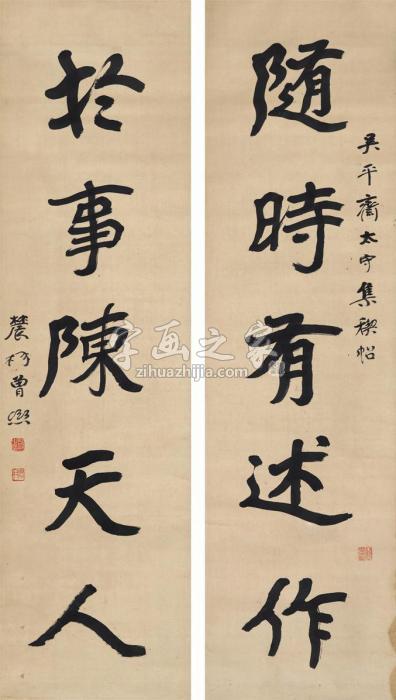 随時有述作
吴平齋太守集禊帖
於事陳天人
農髯曾熙
字画之家
zihuazhijia.com